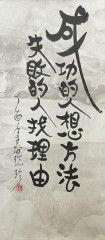 成功的人想方法
失敗的人找理由